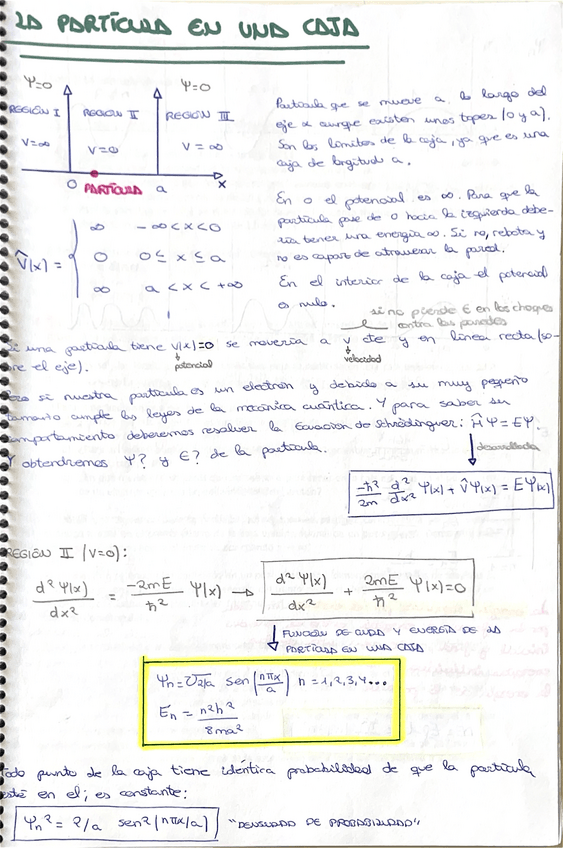 LA PARTÍCULA EN UNA CAJA
Ψ=0 Ψ=0
REGIÓN I REGIÓN II REGIÓN III
V=∞ V=0 V=∞
0 PARTÍCULA a x
Partícula que se mueve a lo largo del
eje x aunque existen unos topes (0 y a).
Son los límites de la caja, ya que es una
caja de longitud a.
En 0 el potencial es ∞. Para que la
partícula pase de 0 hacia la izquierda debe-
ría tener una energía ∞. Si no, rebota y
no es capaz de atravesar la pared.
En el interior de la caja el potencial
es nulo.
V̂(x) = { ∞ -∞<x<0
0 0≤x≤a
∞ a<x<+∞
si no pierde E en los choques
contra las paredes
Si una partícula tiene V(x)=0 se movería a v cte y en línea recta (so-
bre el eje).
potencial velocidad
si nuestra partícula es un electrón y debido a su muy pequeño
tamaño cumple las leyes de la mecánica cuántica. Y para saber su
comportamiento deberemos resolver la Ecuación de Schrödinguer: ĤΨ=EΨ.
Y obtendremos Ψ? y E? de la partícula.
desarrollada
-ħ²/2m d²/dx² Ψ(x) + V̂Ψ(x) = EΨ(x)
REGIÓN II (V=0):
d²Ψ(x)/dx² = -2mE/ħ² Ψ(x) → d²Ψ(x)/dx² + 2mE/ħ² Ψ(x)=0
FUNCIÓN DE ONDA Y ENERGÍA DE LA
PARTÍCULA EN UNA CAJA
Ψn=√2/a sen(nπx/a) n=1,2,3,4...
En = n²h²/8ma²
Todo punto de la caja tiene idéntica probabilidad de que la partícula
esté en el; es constante:
Ψn² = 2/a sen²(nπx/a) "DENSIDAD DE PROBABILIDAD"